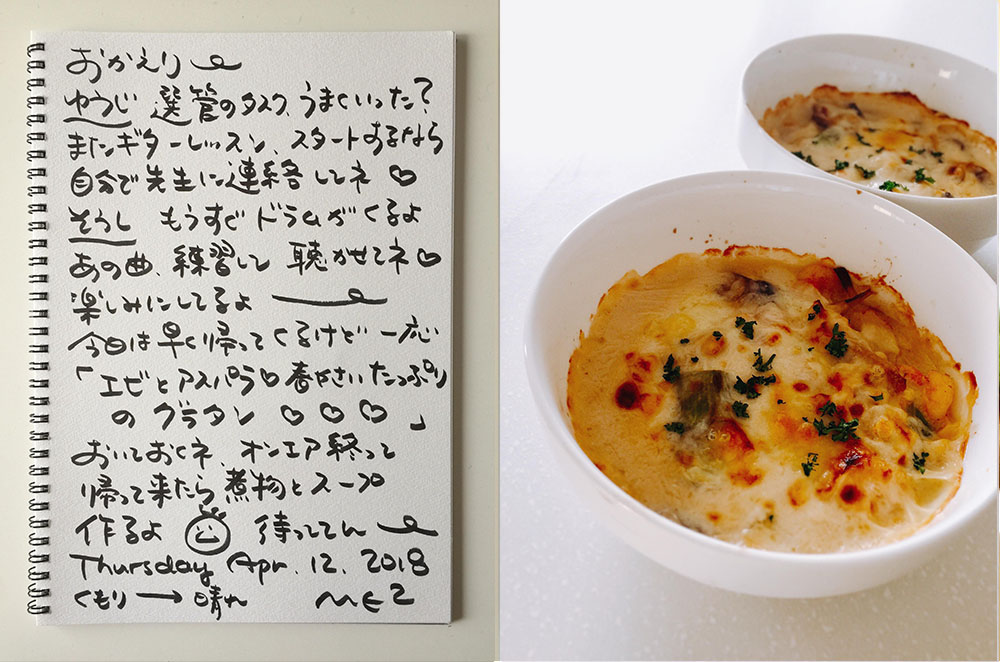 おかえり
ゆうじ 選管のタスク、うまくいった?
またギターレッスン、スタートするなら
自分で先生に連絡してネ ♡
そうし もうすぐドラムがくるよ
あの曲、練習して 聴かせてネ♡
楽しみにしてるよ
今日は早く帰ってくるけど 一応
「エビとアスパラ♡春やさいたっぷり
の グラタン ♡ ♡ ♡ 」
おいておくネ、オンエア終って
帰って来たら煮物とスープ
作るよ 待っててん
Thursday Apr. 12. 2018
くもり → 晴れ ME2